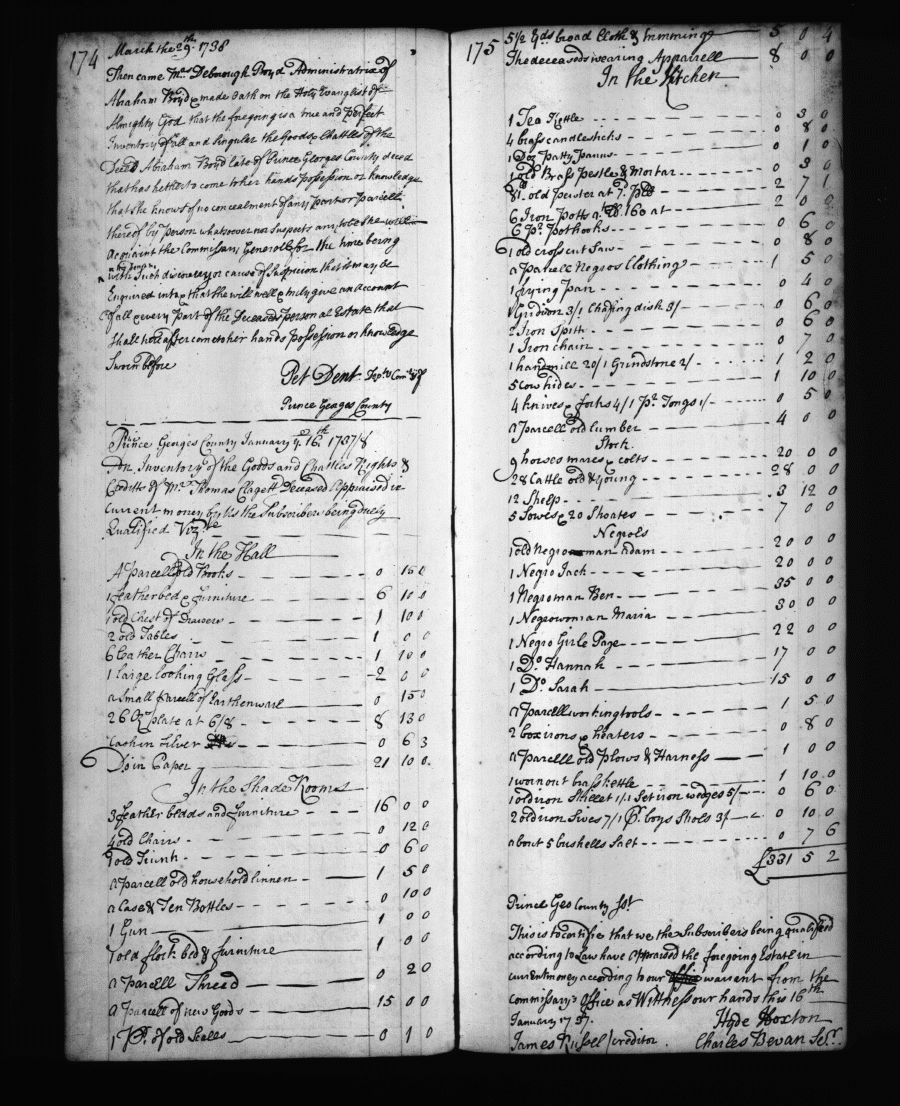 174
March the 29th. 1738
Then came Mrs Deborough Boyd Administratrix of
Abraham Boyd & made Oath on the Holy Evanglist of
Almighty God that the foregoing is a true and Perfect
Inventory of all and singular the Goods & Chattles of the
Deced Abraham Boyd late of Prince Georges County deced
that has hetherto come to her hands Possession or knowledge
that she knows of no concealment of any part or Parcell
thereof by Person whatsoever nor Suspects any to be She will
acquaint the Commissary Generll for the time being
with Such discovery or cause of Suspicion that it may be
Enquired into & that she will well & truly give an account
of all & every Part of the Deceaseds Personal Estate that
Shall hereafter come to her hands Possession or knowledge
Sworn before
Pet Dent Depty Comry of
Prince Georges County
Prince Georges County January ye. 16th 1737/8
An Inventory of the Goods and Chattles Rights &
Creditts of Mr. Thomas Clagett Deceased Appraised in
Current money by us the Subscribers being duely
Qualified Vizt
In the Hall
A Parcell old Books 0 15 0
1 featherbed & furniture 6 10 0
1 old Chest of Drawers 1 10 0
2 old Tables 1 0 0
6 Leather Chairs 1 10 0
1 large looking Glass 2 0 0
a Small Parcell of Earthenware 0 15 0
26 Oz plate at 6/8 8 13 0
Cash in Silver 0 6 3
Do in Paper 21 10 0
In the Shade Roomes
3 feather bedds and furniture 16 0 0
4 old Chairs 0 12 0
1 old Trunk 0 6 0
a Parcell old household linnen 1 5 0
a Case & Ten Bottles 0 10 0
1 Gun 1 0 0
1 old flock bed & furniture 1 0 0
a Parcell Thread 0 2 0
a Parcell of new Goods 15 0 0
1 Pr. of old Scales 0 1 0
175
5 1/2 Yds broad Cloth & trimmings 5 0 4
The deceaseds wearing Apparrell 8 0 0
In the Kitchen
1 Tea Kettle 0 3 0
4 brass candlesticks 0 8 0
1 Doz Patty Panns 0 1 0
1 old Brass Pestle & Mortar 0 3 0
old Pewter at 2 7 1
6 Iron Potts 160 at 2 0 0
6 Pr. Pothooks 0 6 0
1 old cross cut Saw 0 8 0
a Parcell Negros Clothing 1 5 0
1 frying Pan 0 4 0
1 Gridiron 3/1 Chafing dish 3/ 0 6 0
2 Iron Spitts 0 6 0
1 Iron chain 0 7 0
1 handmill 20/1 Grindstone 2/ 1 2 0
5 Cow hides 1 10 0
4 knives & forks 4/1 Pr. Tongs 1/ 0 5 0
a Parcell old lumber 4 0 0
Stock
9 horses mares & colts 20 0 0
28 Cattle old & young 28 0 0
12 Sheep 3 12 0
5 Sowes & 20 Shoates 7 0 0
Negroes
1 old Negroman Adam 20 0 0
1 Negro Jack 20 0 0
1 Negroman Ben 35 0 0
1 Negrowoman Maria 30 0 0
1 Negro Girle Page 22 0 0
1 Do. Hannah 17 0 0
1 Do. Sarah 15 0 0
a Parcell working tools 1 5 0
2 box irons & heaters 0 8 0
a Parcell old Plows & Harness 1 0 0
1 wornout brass kettle 1 10 0
1 old iron Skillet 1/1 Set iron wedges 5/ 0 6 0
2 old iron Sives 7/1 Pr. boys Shoes 3/ 0 10 0
about 5 bushells Salt 0 7 6
£331 5 2
Prince Geo County sst
This is to certifie that we the Subscribers being qualified
according to Law have Appraised the foregoing Estate in
current money according to our warrent from the
Commissary's office as Wittness our hands this 16th
January 1737.
Hyde Hoxton
James Russel / creditor Charles Bevan Ser.